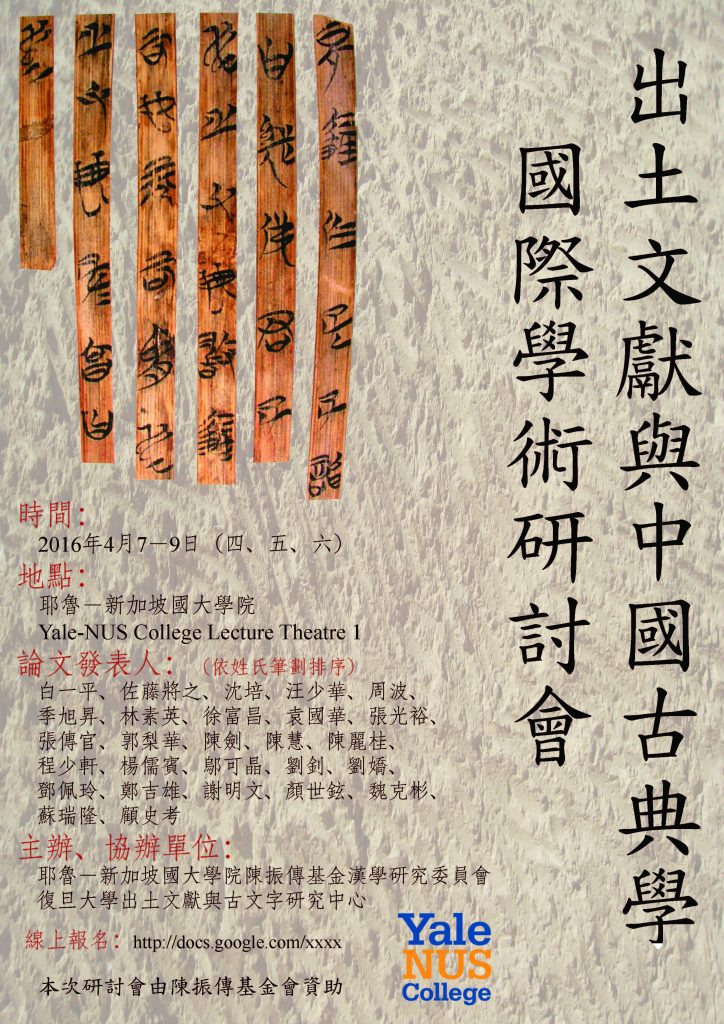 出土文獻與中國古典學
國際學術研討會
時間：
2016年4月7－9日（四、五、六）
地點：
耶魯－新加坡國大學院
Yale-NUS College Lecture Theatre 1
論文發表人：（依姓氏筆劃排序）
白一平、佐藤將之、沈培、汪少華、周波、
季旭昇、林素英、徐富昌、袁國華、張光裕、
張傳官、郭梨華、陳劍、陳慧、陳麗桂、
程少軒、楊儒賓、鄔可晶、劉釗、劉嬌、
鄧佩玲、鄭吉雄、謝明文、顏世鉉、魏克彬、
蘇瑞隆、顧史考
主辦、協辦單位：
耶魯－新加坡國大學院陳振傳基金漢學研究委員會
復旦大學出土文獻與古文字研究中心
線上報名：http://docs.google.com/xxxx
本次研討會由陳振傳基金會資助
Yale
NUS
College